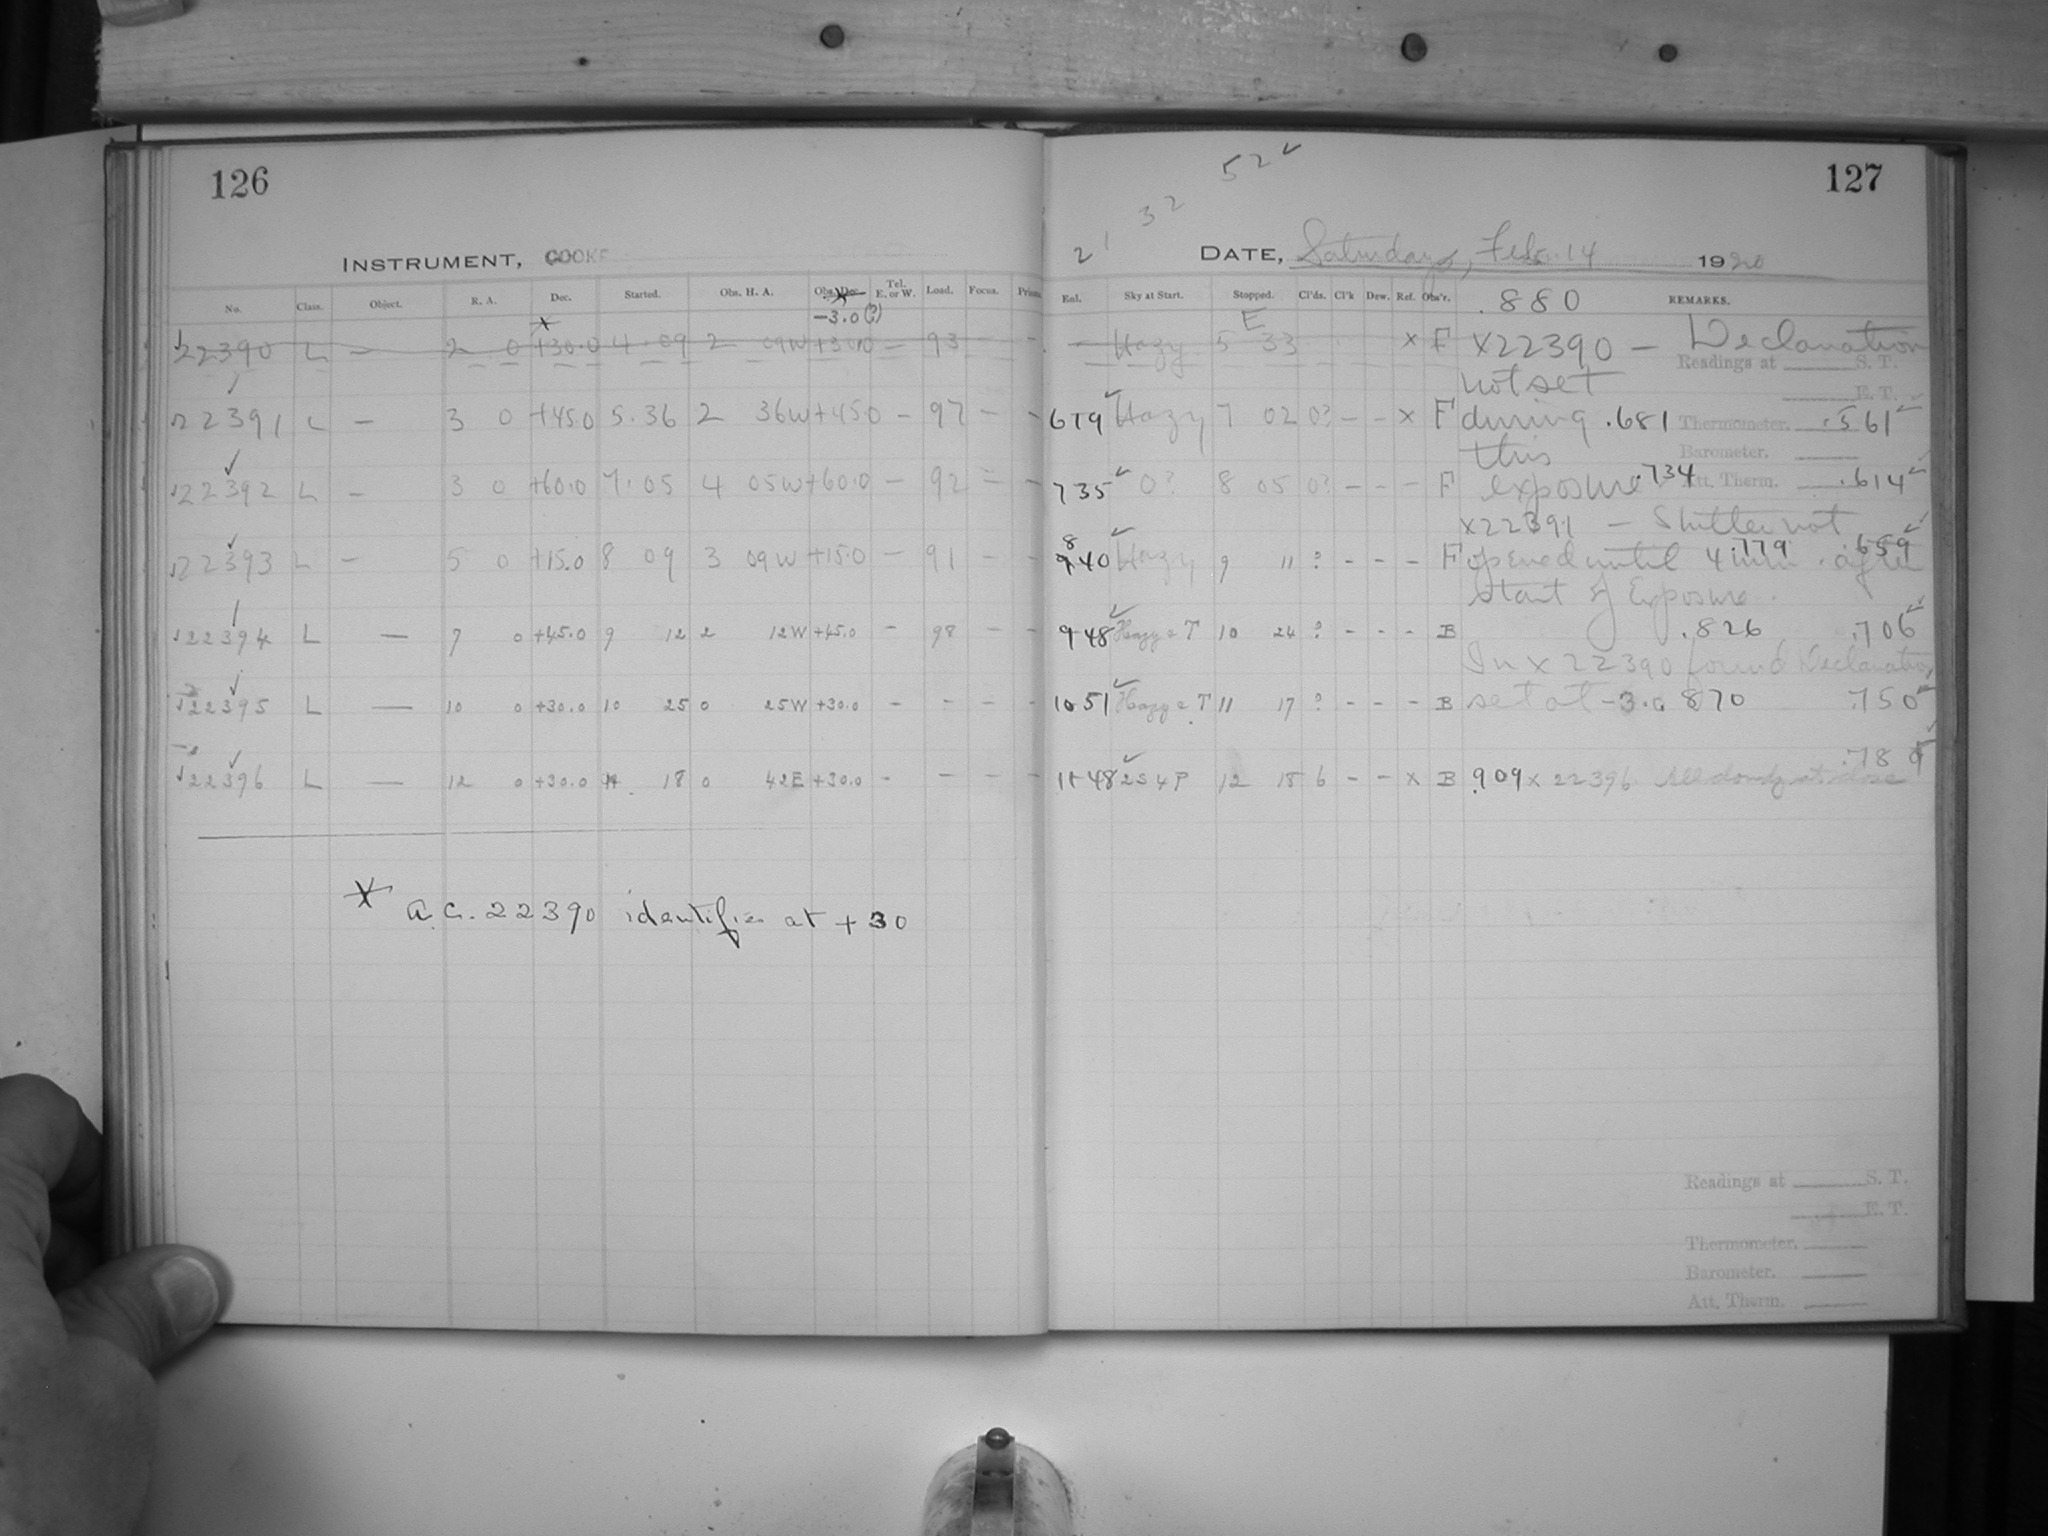 126
INSTRUMENT, COOKE
No. Class. Object. R. A. Dec. Started. Obs. H. A. Obs. Dec. Tel. E. or W. Load. Focus. Prism
* -3.0 (?)
22390 L — 2 0 +30.0 4.09 2 09W +30.0 — 93 - -
22391 L — 3 0 +45.0 5.36 2 36W +45.0 — 97 - -
22392 L — 3 0 +60.0 7.05 4 05W +60.0 — 92 - -
22393 L — 5 0 +15.0 8 09 3 09W +15.0 — 91 - -
22394 L — 7 0 +45.0 9 12 2 12W +45.0 - 98 - -
22395 L — 10 0 +30.0 10 25 0 25W +30.0 - - - -
22396 L — 12 0 +30.0 11 18 0 42E +30.0 - - - -
* A.C. 22390 identifies at +30
52 ✓
32
21
127
DATE, Saturday, Feb. 14 1920
Eql. Sky at Start. Stopped. Cl'ds. Cl'k Dew. Ref. Obs'r. .880 REMARKS.
E
- Hazy 5 33 × F ×22390 — Declanation
Readings at S. T.
not set
E. T.
679 ✓ Hazy 7 02 0? - - × F during .681 Thermometer. .561 ✓
this Barometer.
735 ✓ 0? 8 05 0? - - - F exposure .734 Att. Therm. .614 ✓
×22391 — Shutter not
8
940 ✓ Hazy 9 11 ? - - - F opened until 4 min. .779 after .659 ✓
start of Exposure.
948 ✓ Hazy & T 10 24 ? - - - B .826 .706 ✓
In × 22390 found Declanation
1051 ✓ Hazy & T 11 17 ? - - - B set at -3.0 .870 .750 ✓
1148 ✓ 2S4P 12 18 6 - - × B .909 × 22396 All cloudy at close .789 ✓
Readings at S. T.
E. T.
Thermometer.
Barometer.
Att. Therm.